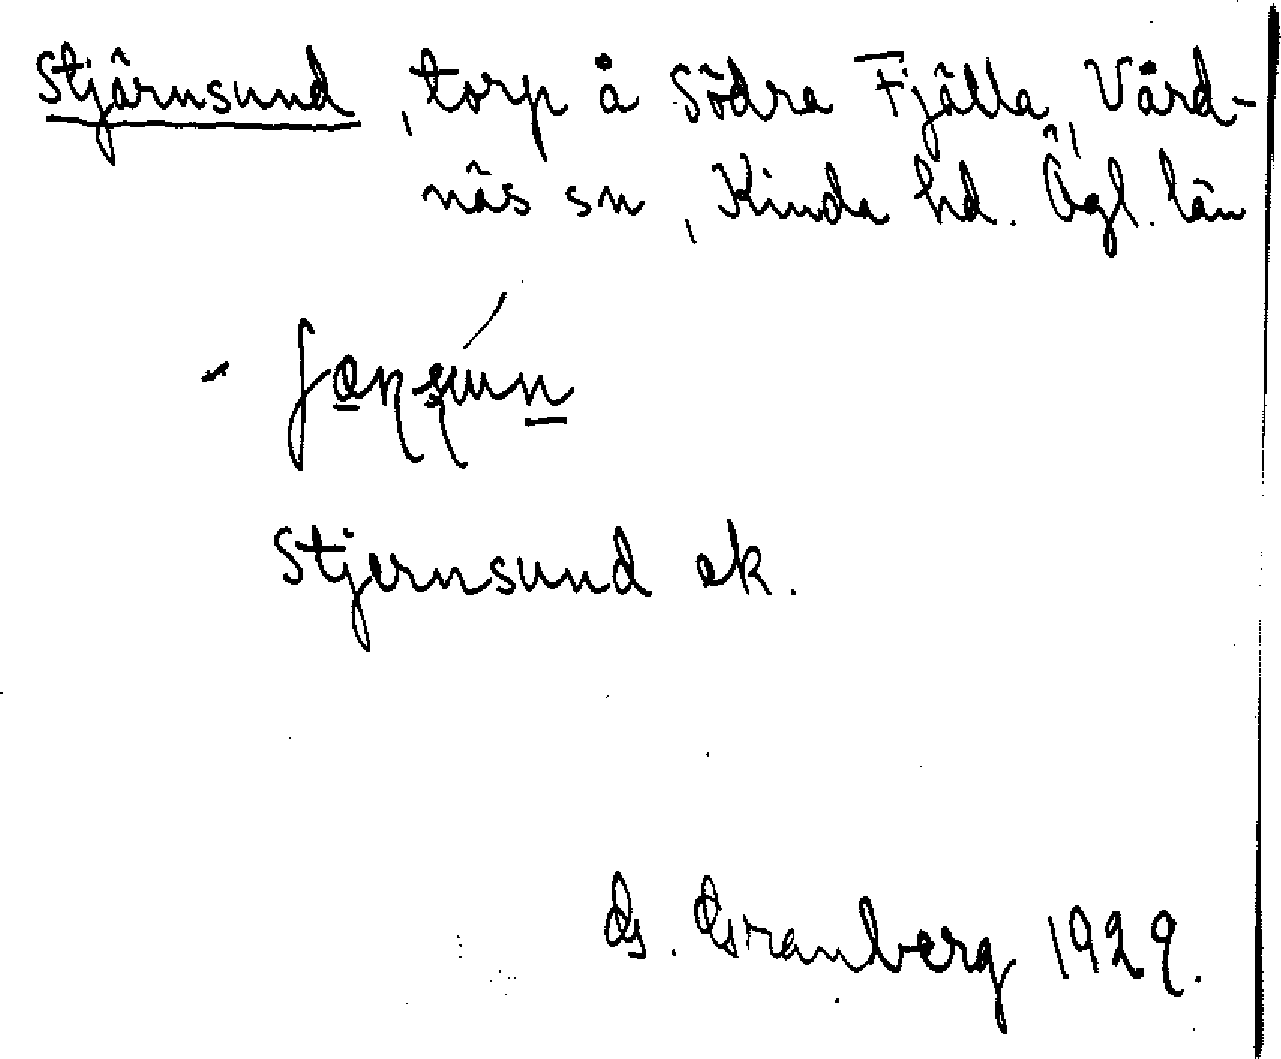 Stjärnsund, torp å Södra Fjälla, Vård-
näs sn, Kinda hd. Ögl. län
Stjernsund ek.
G. Granberg 1929.